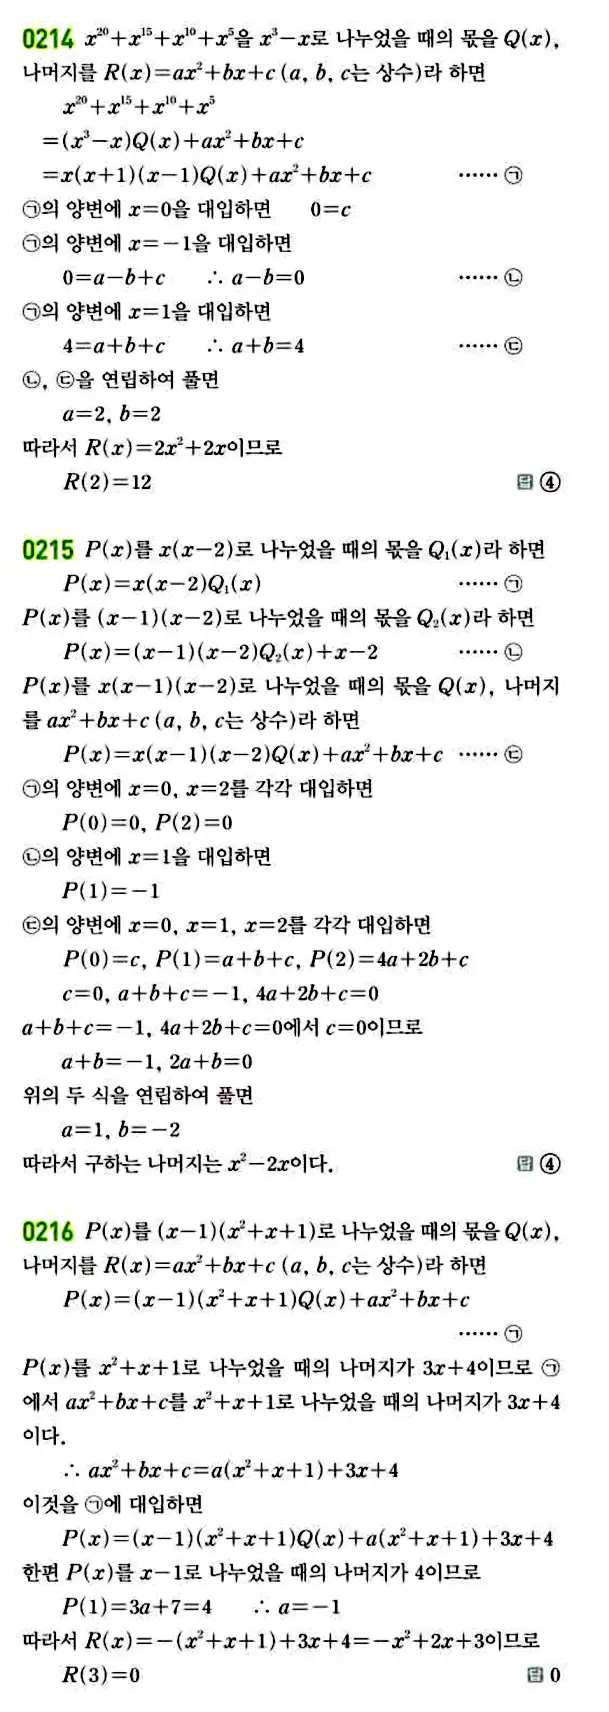 0214 x²⁰+x¹⁵+x¹⁰+x⁵을 x³-x로 나누었을 때의 몫을 Q(x),
나머지를 R(x)=ax²+bx+c (a, b, c는 상수)라 하면
x²⁰+x¹⁵+x¹⁰+x⁵
=(x³-x)Q(x)+ax²+bx+c
=x(x+1)(x-1)Q(x)+ax²+bx+c ······ ㉠
㉠의 양변에 x=0을 대입하면 0=c
㉠의 양변에 x=-1을 대입하면
0=a-b+c ∴ a-b=0 ······ ㉡
㉠의 양변에 x=1을 대입하면
4=a+b+c ∴ a+b=4 ······ ㉢
㉡, ㉢을 연립하여 풀면
a=2, b=2
따라서 R(x)=2x²+2x이므로
R(2)=12 답 ④
0215 P(x)를 x(x-2)로 나누었을 때의 몫을 Q₁(x)라 하면
P(x)=x(x-2)Q₁(x) ······ ㉠
P(x)를 (x-1)(x-2)로 나누었을 때의 몫을 Q₂(x)라 하면
P(x)=(x-1)(x-2)Q₂(x)+x-2 ······ ㉡
P(x)를 x(x-1)(x-2)로 나누었을 때의 몫을 Q(x), 나머지
를 ax²+bx+c (a, b, c는 상수)라 하면
P(x)=x(x-1)(x-2)Q(x)+ax²+bx+c ······ ㉢
㉠의 양변에 x=0, x=2를 각각 대입하면
P(0)=0, P(2)=0
㉡의 양변에 x=1을 대입하면
P(1)=-1
㉢의 양변에 x=0, x=1, x=2를 각각 대입하면
P(0)=c, P(1)=a+b+c, P(2)=4a+2b+c
c=0, a+b+c=-1, 4a+2b+c=0
a+b+c=-1, 4a+2b+c=0에서 c=0이므로
a+b=-1, 2a+b=0
위의 두 식을 연립하여 풀면
a=1, b=-2
따라서 구하는 나머지는 x²-2x이다. 답 ④
0216 P(x)를 (x-1)(x²+x+1)로 나누었을 때의 몫을 Q(x),
나머지를 R(x)=ax²+bx+c (a, b, c는 상수)라 하면
P(x)=(x-1)(x²+x+1)Q(x)+ax²+bx+c
······ ㉠
P(x)를 x²+x+1로 나누었을 때의 나머지가 3x+4이므로 ㉠
에서 ax²+bx+c를 x²+x+1로 나누었을 때의 나머지가 3x+4
이다.
∴ ax²+bx+c=a(x²+x+1)+3x+4
이것을 ㉠에 대입하면
P(x)=(x-1)(x²+x+1)Q(x)+a(x²+x+1)+3x+4
한편 P(x)를 x-1로 나누었을 때의 나머지가 4이므로
P(1)=3a+7=4 ∴ a=-1
따라서 R(x)=-(x²+x+1)+3x+4=-x²+2x+3이므로
R(3)=0 답 0